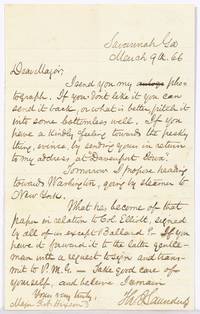 Savannah Ga
March 9th. 66
Dear Major:
I send you my pho-
tograph. If you don't like it you can
send it back, or what is better, pitch it
into some bottomless well. If you
have a kindly feeling towards the pesky
thing, evince, by sending yours in return
to my address at Davenport Iowa.
Tomorrow I propose heading
towards Washington, going by steamer to
New York.
What has become of that
paper in relation to Col Elliott, signed
by all of us except Ballard? If you
have it forward it to the latter gentle-
man with a request to sign and trans-
mit to P.M.G. — Take good care of
yourself, and believe I remain
Yours very truly,
Saunders
Major